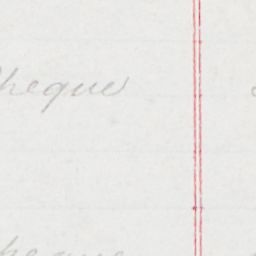 Cheque
Cheque